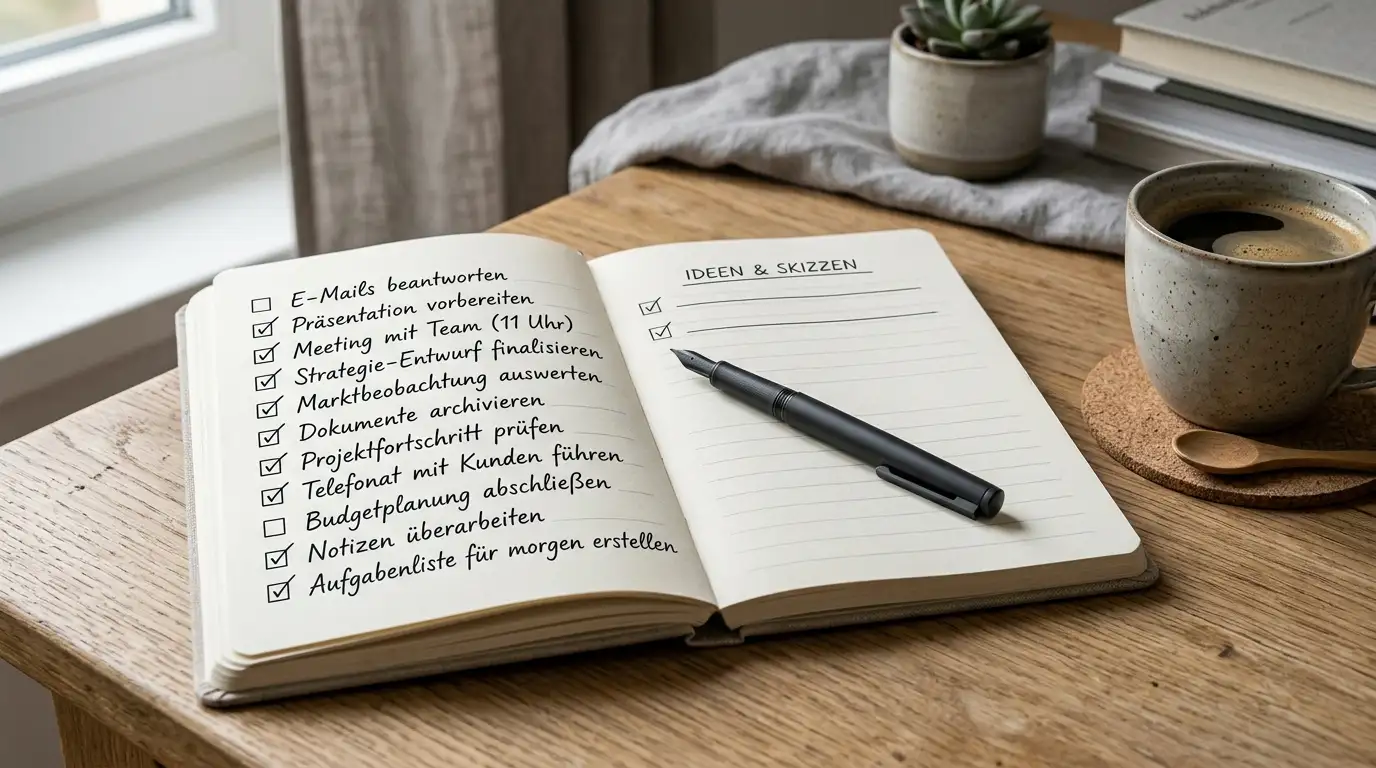 ☐ E-Mails beantworten
☑ Präsentation vorbereiten
☑ Meeting mit Team (11 Uhr)
☑ Strategie-Entwurf finalisieren
☑ Marktbeobachtung auswerten
☑ Dokumente archivieren
☑ Projektfortschritt prüfen
☑ Telefonat mit Kunden führen
☐ Budgetplanung abschließen
☑ Notizen überarbeiten
☑ Aufgabenliste für morgen erstellen
IDEEN & SKIZZEN